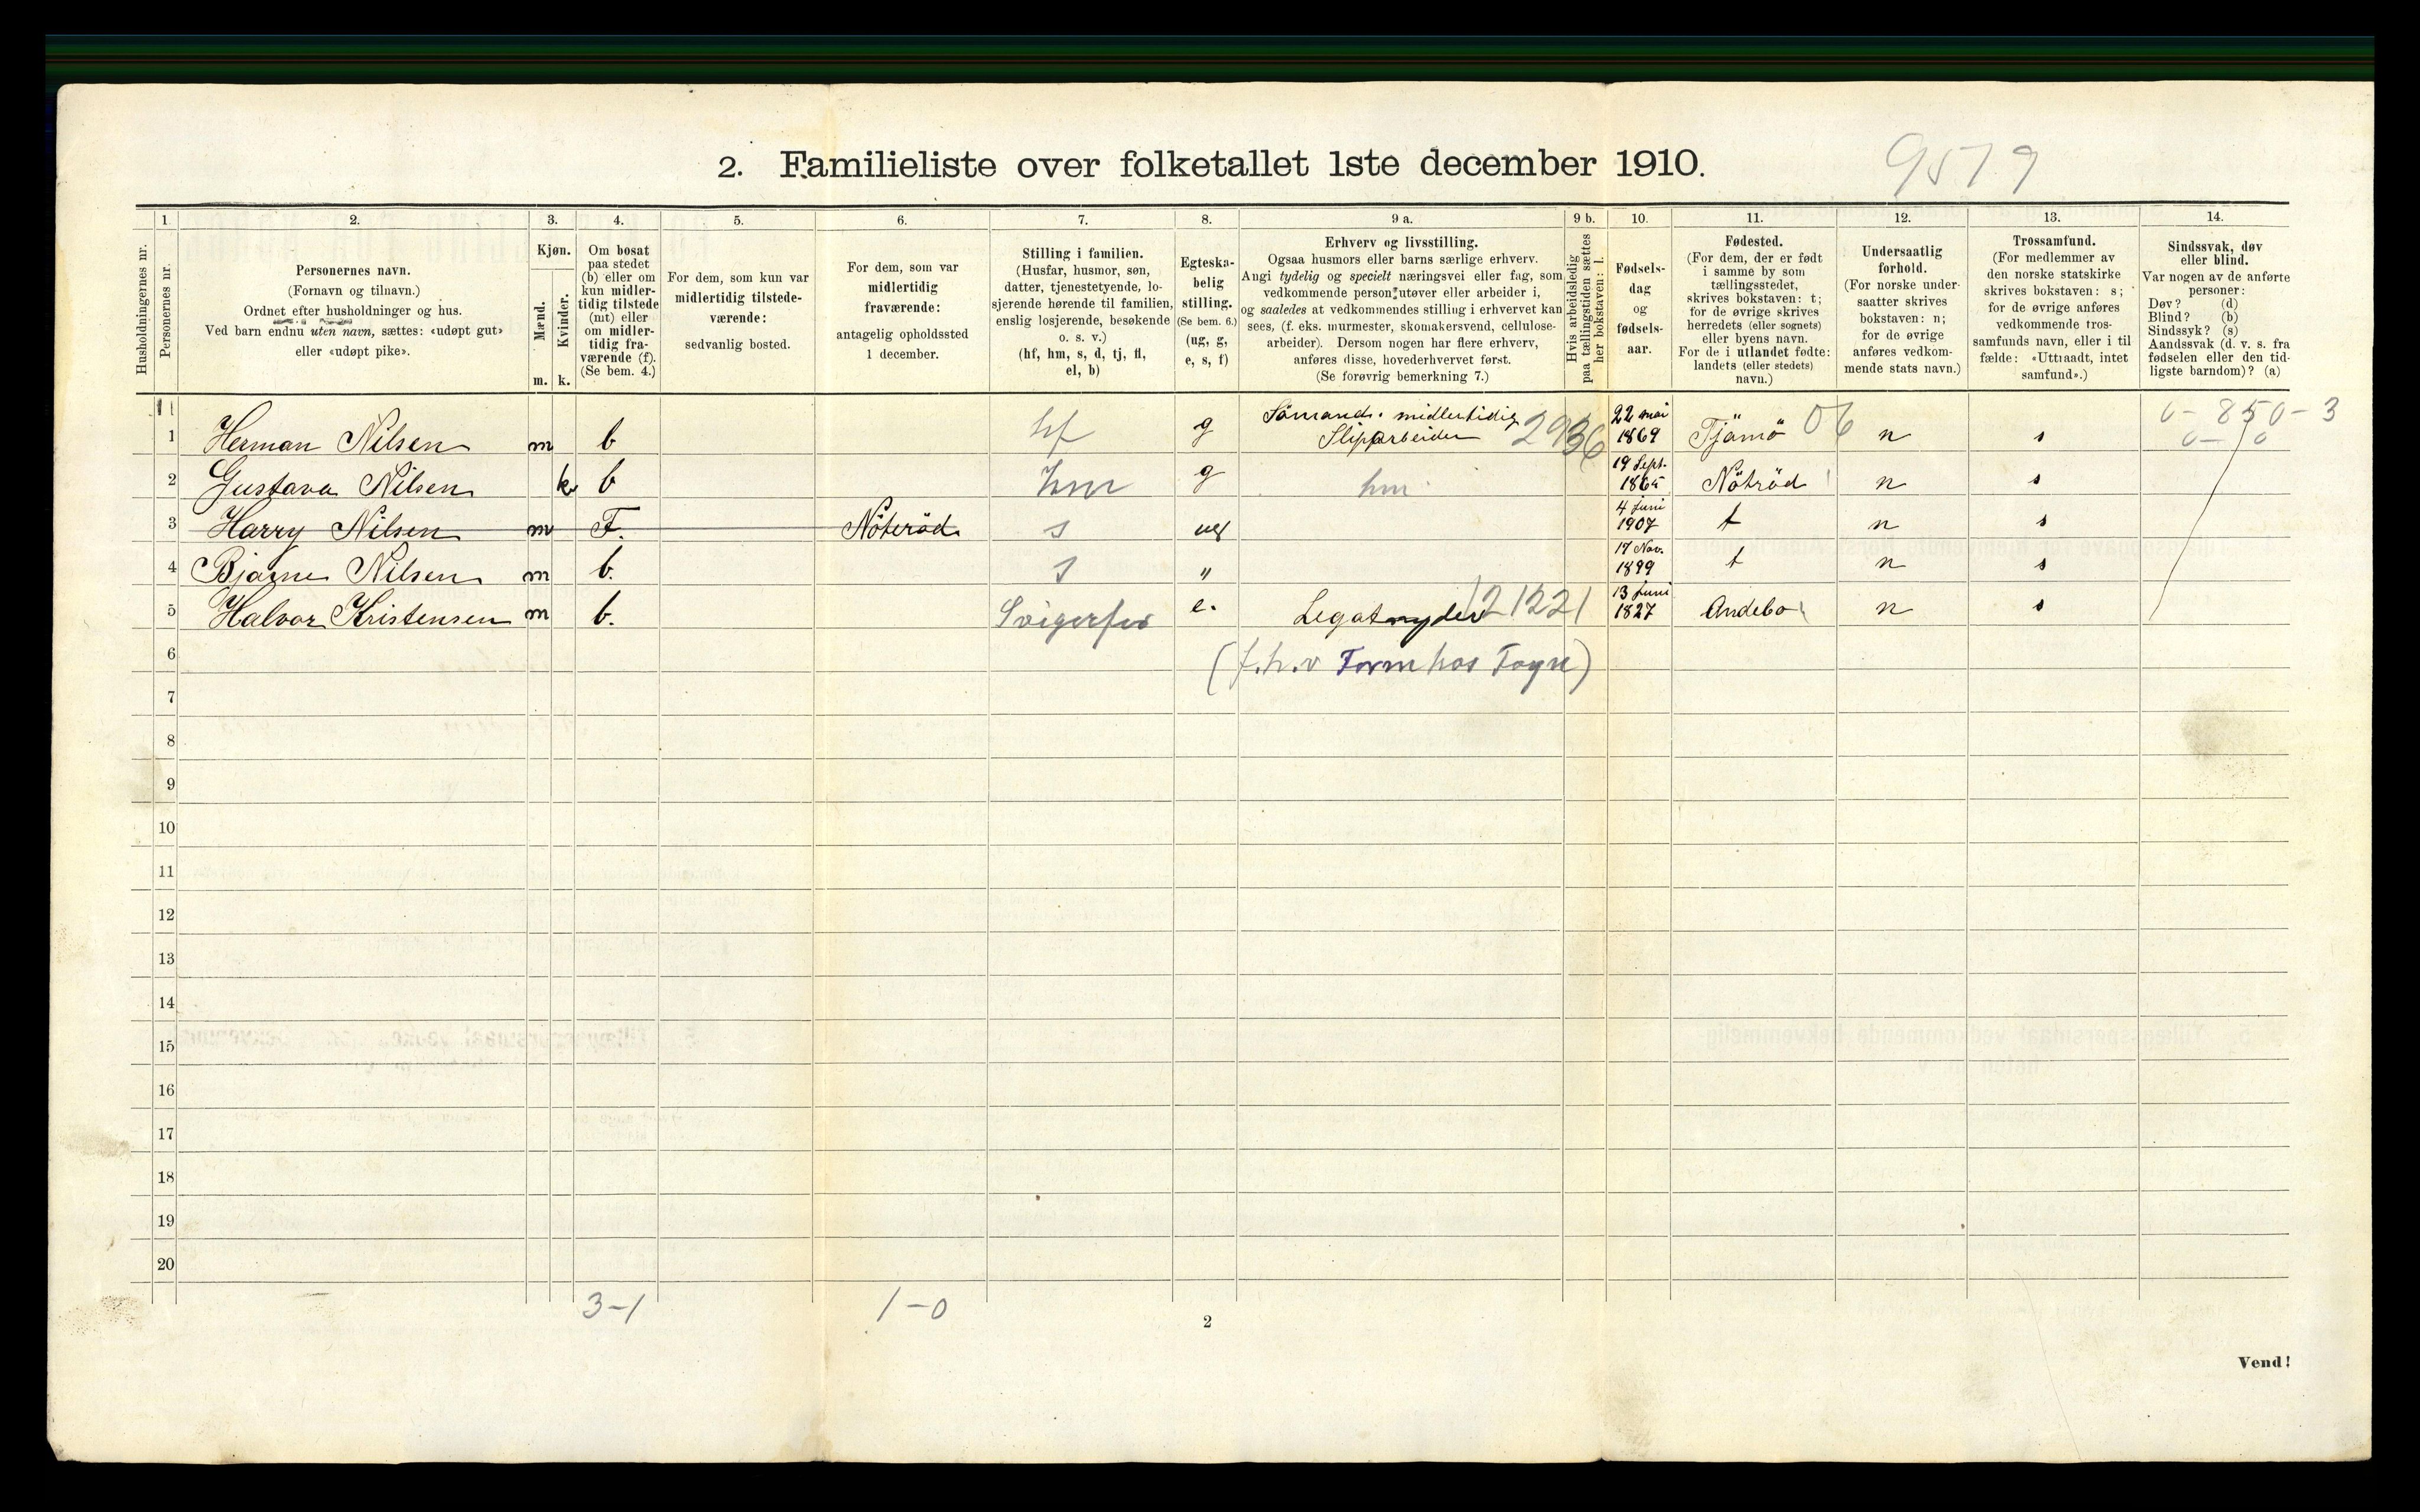 2. Familieliste over folketallet 1ste december 1910.
9579
1. 2. 3. 4. 5. 6. 7. 8. 9 a. 9 b. 10. 11. 12. 13. 14.
Husholdningernes nr.
Personernes nr.
Personernes navn.
(Fornavn og tilnavn.)
Ordnet efter husholdninger og hus.
Ved barn endnu uten navn, sættes: «udøpt gut»
eller «udøpt pike».
Kjøn.
Mænd.
Kvinder.
m. k.
Om bosat
paa stedet
(b) eller om
kun midler-
tidig tilstede
(mt) eller
om midler-
tidig fra-
værende (f).
(Se bem. 4.)
For dem, som kun var
midlertidig tilstede-
værende:
sedvanlig bosted.
For dem, som var
midlertidig
fraværende:
antagelig opholdssted
1 december.
Stilling i familien.
(Husfar, husmor, søn,
datter, tjenestetyende, lo-
sjerende hørende til familien,
enslig losjerende, besøkende
o. s. v.)
(hf, hm, s, d, tj, fl,
el, b)
Egteska-
belig
stilling.
(Se bem. 6.)
(ug, g,
e, s, f)
Erhverv og livsstilling.
Ogsaa husmors eller barns særlige erhverv.
Angi tydelig og specielt næringsvei eller fag, som
vedkommende person utøver eller arbeider i,
og saaledes at vedkommendes stilling i erhvervet kan
sees, (f. eks. murmester, skomakersvend, cellulose-
arbeider). Dersom nogen har flere erhverv,
anføres disse, hovederhvervet først.
(Se forøvrig bemerkning 7.)
Hvis arbeidsledig
paa tællingstiden sættes
her bokstaven: l.
Fødsels-
dag
og
fødsels-
aar.
Fødested.
(For dem, der er født
i samme by som
tællingsstedet,
skrives bokstaven: t;
for de øvrige skrives
herredets (eller sognets)
eller byens navn.
For de i utlandet fødte:
landets (eller stedets)
navn.)
Undersaatlig
forhold.
(For norske under-
saatter skrives
bokstaven: n;
for de øvrige
anføres vedkom-
mende stats navn.)
Trossamfund.
(For medlemmer av
den norske statskirke
skrives bokstaven: s;
for de øvrige anføres
vedkommende tros-
samfunds navn, eller i til
fælde: «Uttraadt, intet
samfund».)
Sindssvak, døv
eller blind.
Var nogen av de anførte
personer:
Døv? (d)
Blind? (b)
Sindssyk? (s)
Aandssvak (d. v. s. fra
fødselen eller den tid-
ligste barndom)? (a)
1 Herman Nilsen m b hf g Sömand. midlertidig Sliparbeider 2936 22 mai 1869 Tjömö 06 n s 0-850-3
0- 0
2 Gustava Nilsen k b hm g hm 19 Sept. 1865 Nötröd n s
3 Harry Nilsen m F. Nöteröd s ug 4 juni 1907 t n s
4 Bjarne Nilsen m b. s " 17 Nov. 1899 t n s
5 Halvor Kristensen m b. Svigerfar e. Legatnyder 121221 13 juni 1827 Andebo n s
6 (f.h.v Formhos Fogn)
7
8
9
10
11
12
13
14
15
16
17
18
19
20
3-1 1-0
2
Vend!